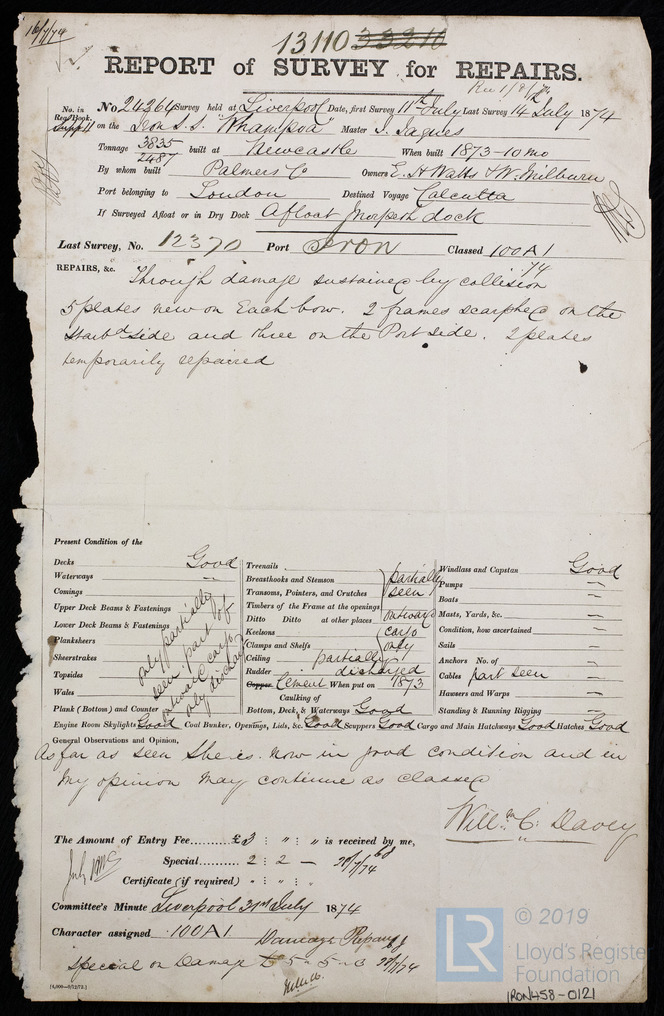 16/7/74
13110 33210
REPORT of SURVEY for REPAIRS.
Rec 1/8/74
No. in Reg. Book. Supp 11
No 24264 Survey held at Liverpool Date, first Survey 11th July Last Survey 14 July 1874
on the Iron S.S. "Whampoa" Master J. Jaques
Tonnage 3835 2487 built at Newcastle When built 1873-10 mo
By whom built Palmers Co Owners E. H. Watts & W. Milburn
Port belonging to London Destined Voyage Calcutta
If Surveyed Afloat or in Dry Dock Afloat Morpeth dock
Last Survey, No. 12370 Port Iron Classed 100A1
74
REPAIRS, &c. Through damage sustained by collision
5 plates new on Each bow. 2 frames scarphed on the
starbd side and three on the Port side. 2 plates
temporarily repaired
Present Condition of the
Decks Good
Waterways "
Comings
Upper Deck Beams & Fastenings
Lower Deck Beams & Fastenings
Planksheers
Sheerstrakes
Topsides
Wales
Plank (Bottom) and Counter
only partially seen part of outward cargo only discharged
Treenails
Breasthooks and Stemson
Transoms, Pointers, and Crutches
Timbers of the Frame at the openings
Ditto Ditto at other places
Keelsons
Clamps and Shelfs
partially seen outward cargo only
Ceiling partially
Rudder discharged
Copper Cement When put on 1873
Caulking of
Bottom, Deck, & Waterways Good
Windlass and Capstan Good
Pumps "
Boats "
Masts, Yards, &c. "
Condition, how ascertained "
Sails "
Anchors No. of "
Cables part seen
Hawsers and Warps "
Standing & Running Rigging "
Engine Room Skylights Good Coal Bunker, Openings, Lids, &c. Good Scuppers Good Cargo and Main Hatchways Good Hatches Good
General Observations and Opinion,
As far as seen She is now in good condition and in
my opinion may continue as classed
Willm C. Davey
The Amount of Entry Fee..........£3 : " : " is received by me,
Special.......... 2 : 2 - 20/7/74
Certificate (if required) " : " : "
Committee's Minute Liverpool 31st July 1874
Character assigned 100A1
Damage Repairs
special on Damage £5-5-0 20/7/74
[4,000—9/12/72.]
LR
© 2019
Lloyd's Register
Foundation
IRON458-0121